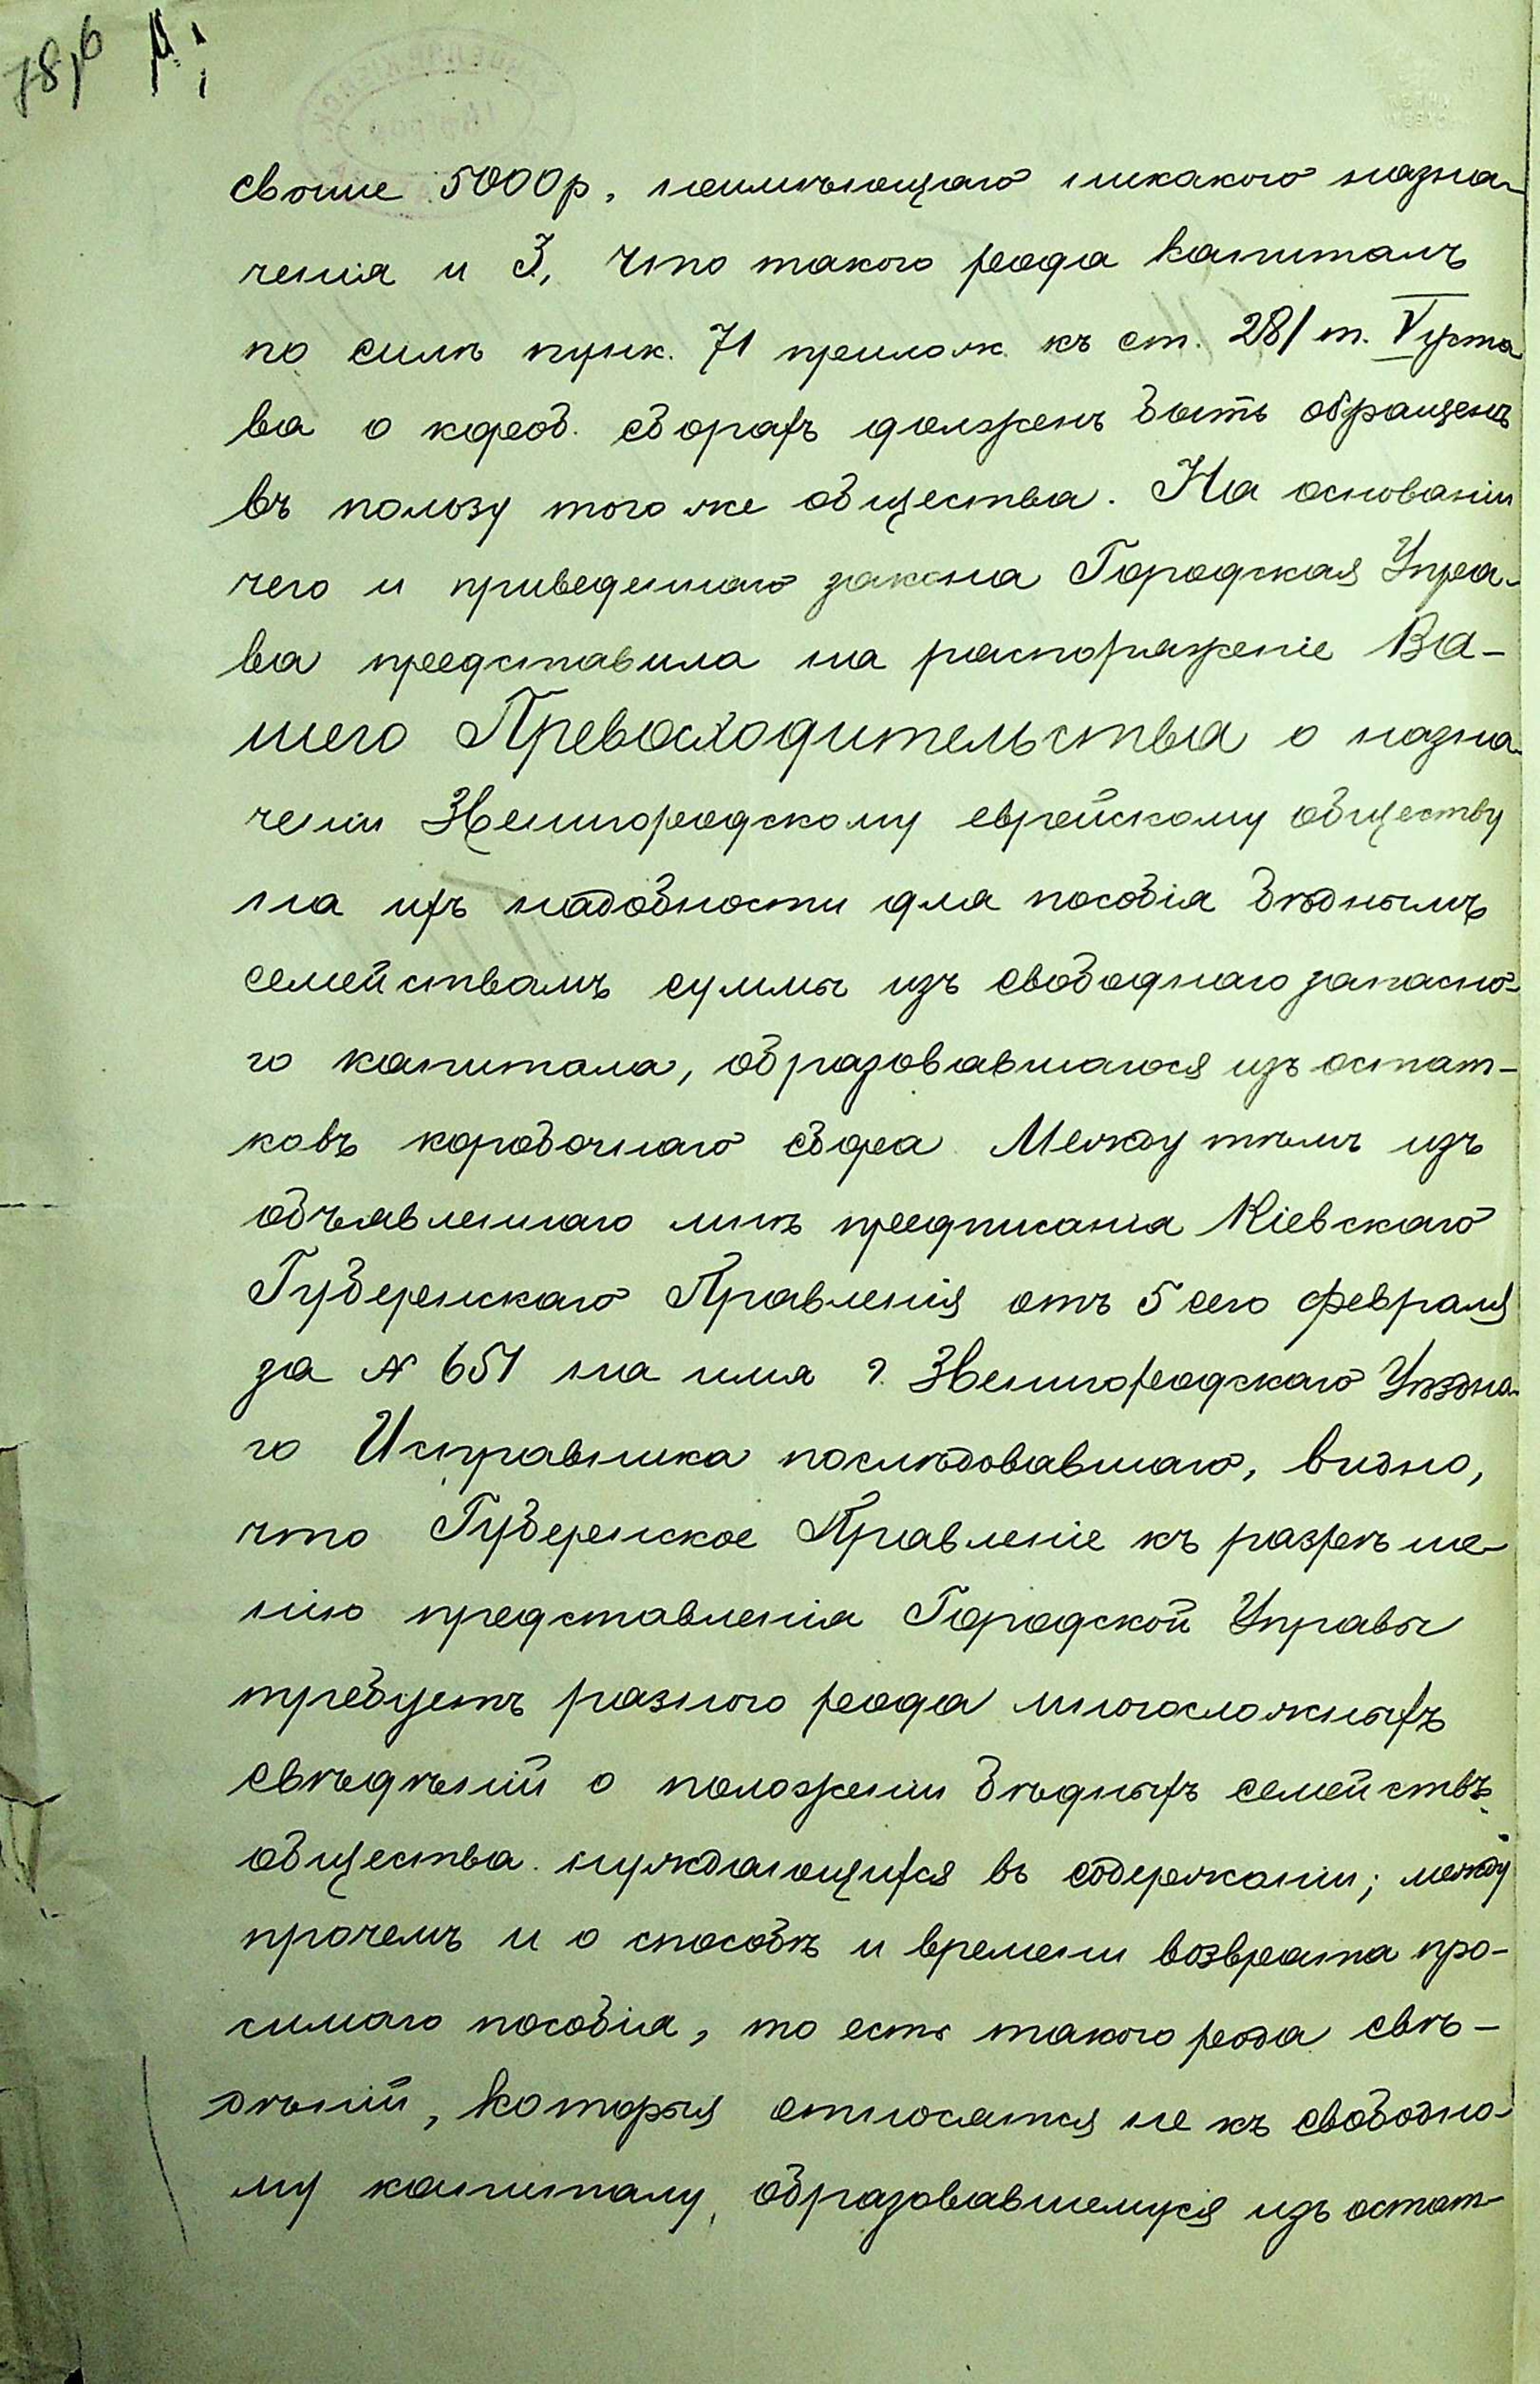 свыше 5000 р, неимѣющаго никакого назна-
ченія и 3, что такого рода капиталъ
по силѣ пунк. 71 прилож. къ ст. 281 т. V уста
ва о короб. сборахъ долженъ быть обращенъ
въ пользу того же общества. На основаніи
чего и приведеннаго закона Городская Упра-
ва представила на распоряженіе Ва-
шего Превосходительства о назна-
чении Звенигородскому еврейскому обществу
на ихъ надобности для пособія бѣднымъ
семействамъ суммы изъ свободнаго запасно-
го капитала, образовавшагося изъ остат-
ковъ коробочнаго сбора. Между тѣмъ изъ
объявленнаго мнѣ предписанія Кіевскаго
Губернскаго Правленія отъ 5 сего февраля
за № 651 на имя г. Звенигородскаго Уѣздна-
го Исправника послѣдовавшаго, видно,
что Губернское Правленіе къ разрѣше-
нію представленія Городской Управы
требуетъ разного рода многосложныхъ
свѣдѣній о положеніи бѣдныхъ семействъ
общества нуждающихся въ содержаніи; между
прочемъ и о способѣ и времени возврата про-
симаго пособія, то есть такого рода свѣ-
дѣній, которыя относятся не къ свободно-
му капиталу, образовавшемуся изъ остат-